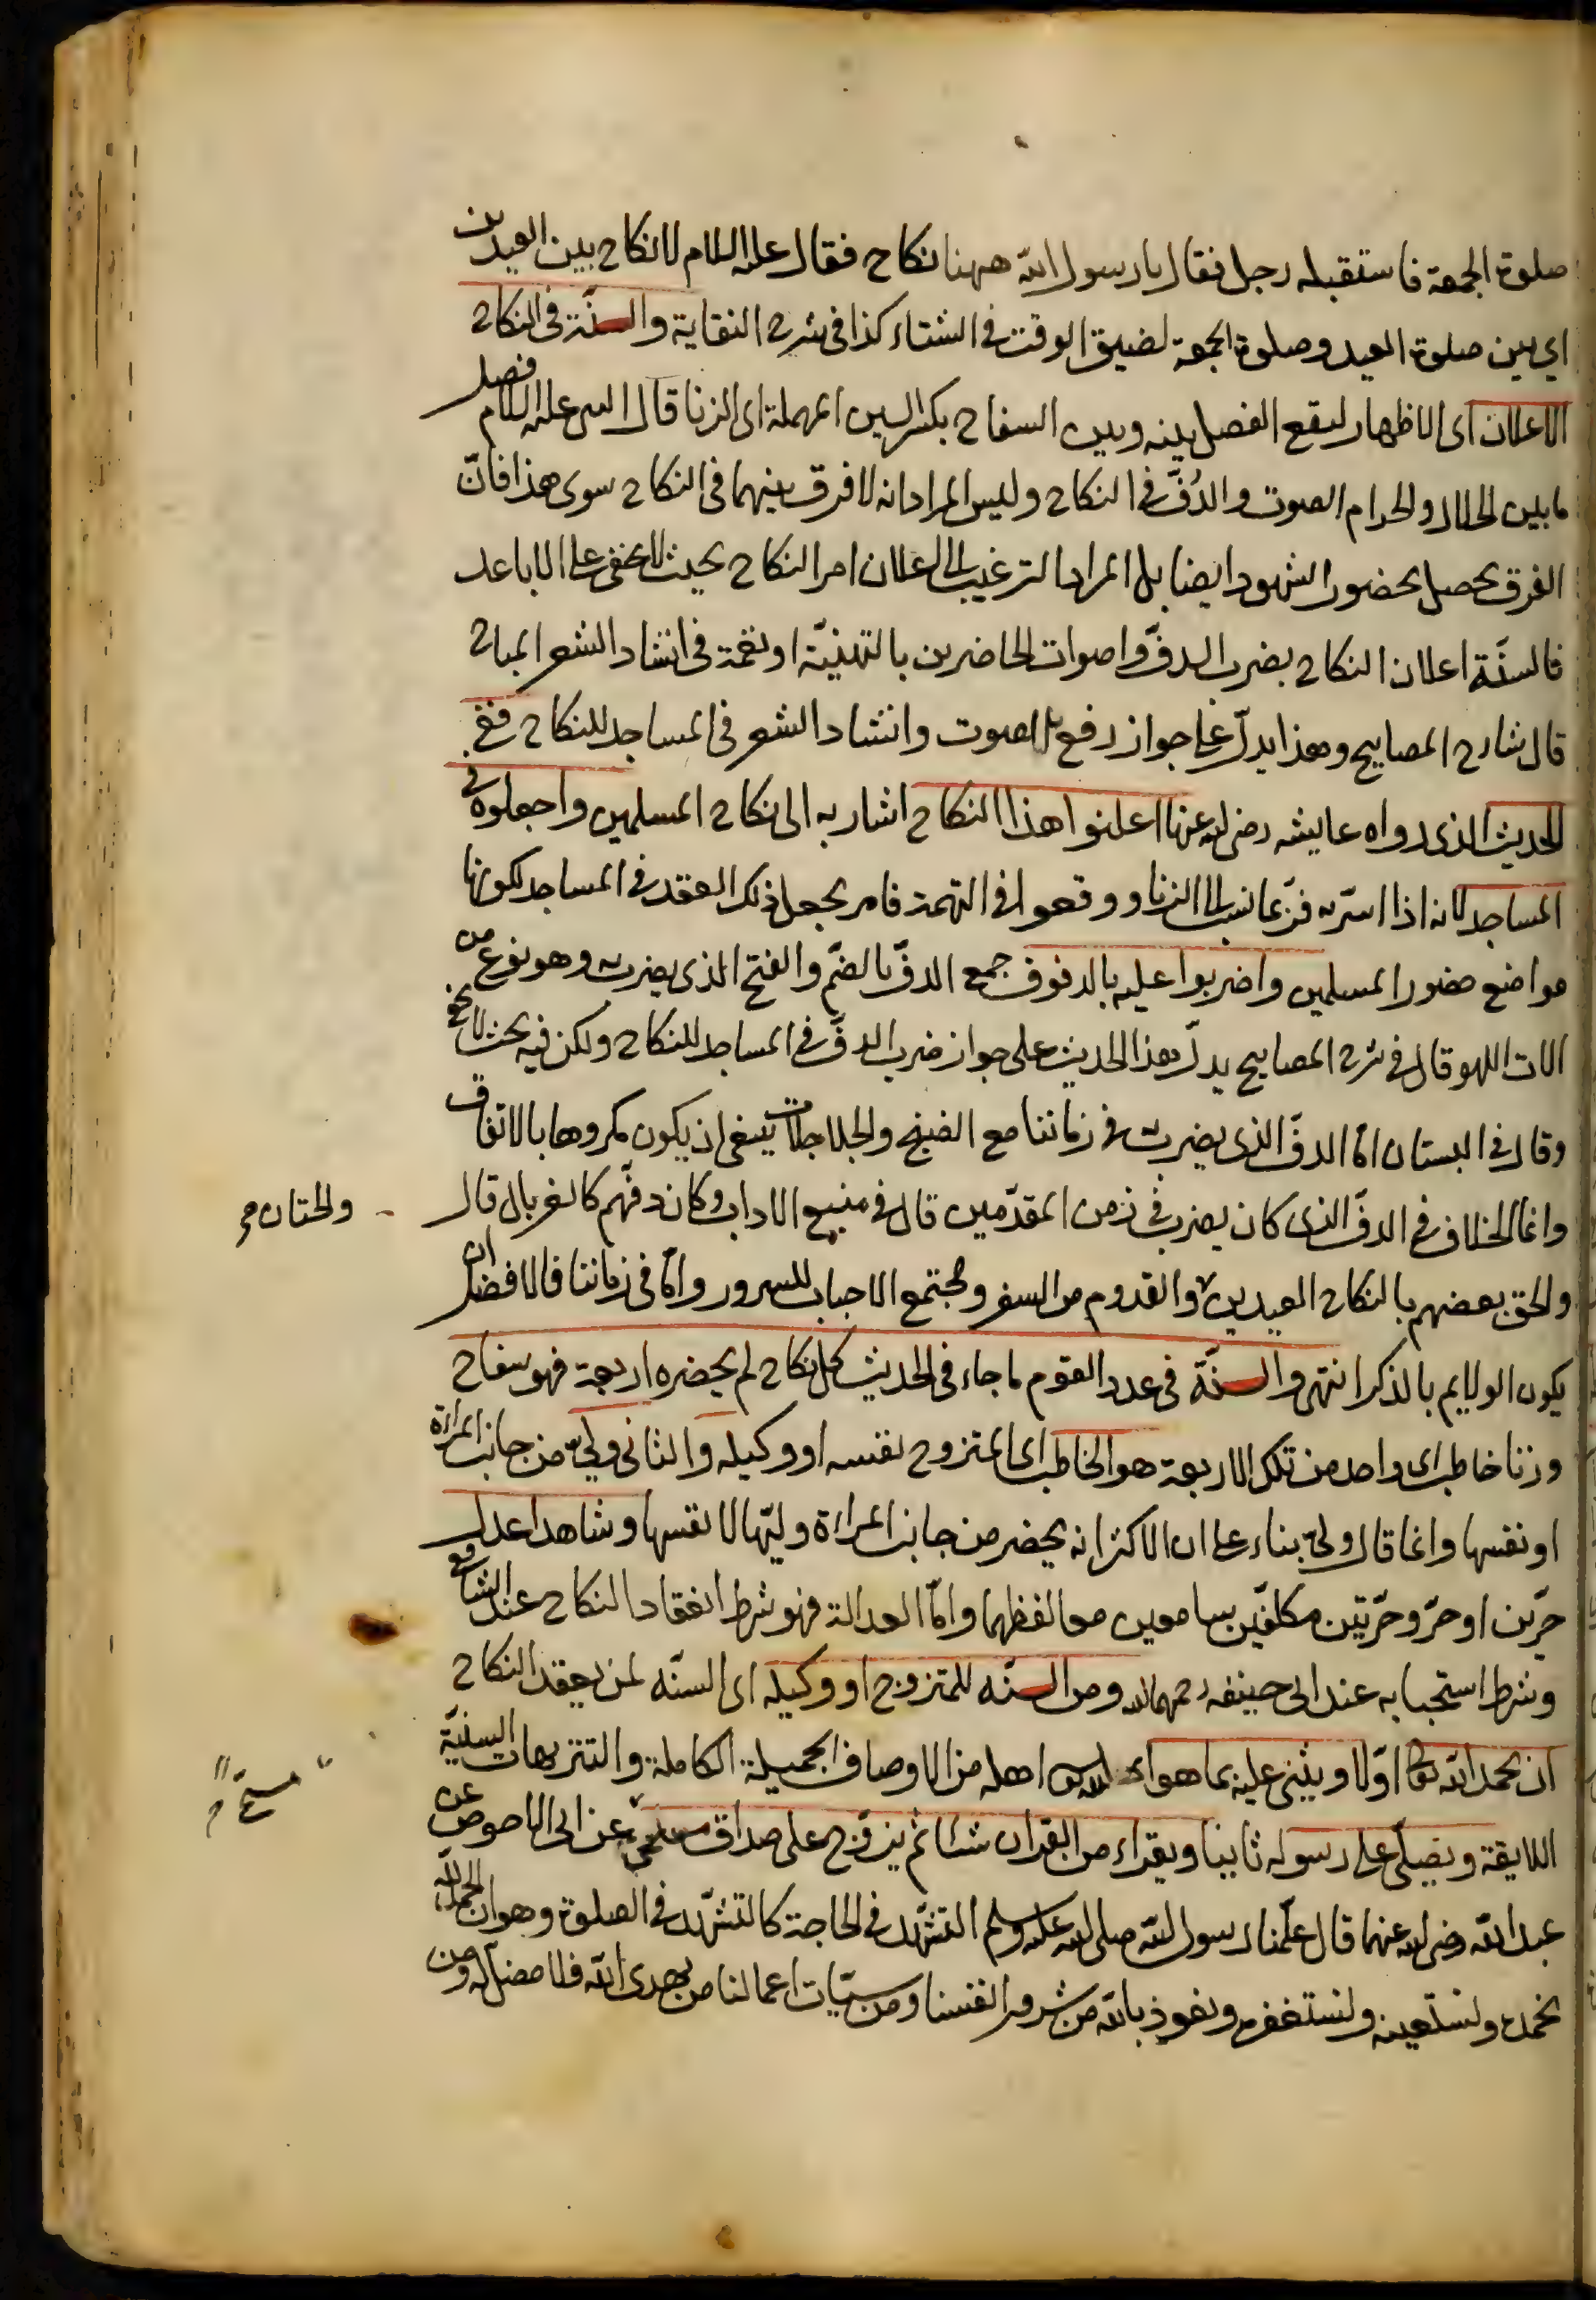 صلوة الجمعة فاستقبله رجل فقال يا رسول الله ههنا نكاح فقال عليه السلام لا نكاح بين العيدين
اي بين صلوة العيد وصلوة الجمعة لضيق الوقت في الشتاء كذا في شرح النقاية والسنّة في النكاح
الاعلان اى الاظهار ليقع الفصل بينه وبين السفاح بكسر السين المهملة اى الزنا قال النبى عليه السلام فصل
ما بين الحلال والحرام الصوت والدُفّ في النكاح وليس المراد انه لا فرق بينهما في النكاح سوى هذا فانّ
الفرق يحصل بحضور الشهود ايضا بل المراد الترغيب الى اعلان امر النكاح بحيث لا يخفى على الاباعد
فالسنّة اعلان النكاح بضرب الدفّ واصوات الحاضرين بالتهنيّة او نغمة في انشاد الشعر المباح
قال شارح المصابيح وهذا يدلّ على جواز رفع الصوت وانشاد الشعر في المساجد للنكاح ففى
الحديث الذى رواه عايشه رضى الله عنها اعلنوا هذا النكاح اشار به الى نكاح المسلمين واجعلوه فى
المساجد لانه اذا اسرّ به فربّما نسب الى الزنا ووقعوا في التهمة فامر بجعل ذلك العقد في المساجد لكونها
مواضع حضور المسلمين واضربوا عليه بالدفوف جمع الدفّ بالضمّ والفتح الذى يضرب به وهو نوع من
الات اللهو قال في شرح المصابيح يدلّ هذا الحديث على جواز ضرب الدفّ في المساجد للنكاح ولكن فيه بحث لا يخفى
وقال في البستان امّا الدفّ الذى يضرب في زماننا مع الصنج والجلاجلات ينبغى ان يكون مكروها بالاتفاق
وانما الخلاف في الدفّ الذى كان يضرب في زمن المقدّمين قال في منبع الاداب وكان دفّهم كالغربال قال
والحق بعضهم بالنكاح العيدين والقدوم من السفر ومجتمع الاحباب للسرور وامّا في زماننا فالافضل ان
والختان صح
يكون الولايم بالذكر انتهى والسنّة في عدد القوم ما جاء في الحديث كل نكاح لم يحضره اربعة فهو سفاح
وزنا خاطب اى واحد من تلك الاربعة هو الخاطب اى المتزوج نفسه او وكيله والثانى وليّ من جانب المراءة
او نفسها وانما قال ولىّ بناء على ان الاكثر انه يحضر من جانب المراءة وليّها لا نفسها وشاهدا عدل
حرّين او حرّ وحرّيّتين مكلفين سامعين معا لفظهما وامّا العدالة فهو شرط انعقاد النكاح عند الشافعى
وشرط استحبابه عند ابى حنيفه رحمهما الله ومن السنّه للمتزوج او وكيله اى السنّه لمن يعقد النكاح
ان يحمد الله تعالى اوّلا ويثنى عليه بما هو اهله من الاوصاف الجميلة الكاملة والتنزيهات السنيّة
اللايقة ويصلّى على رسوله ثانيا ويقراء من القران شيئا ثم يتزوّج على صداق مسمّى عن ابى الاحوص عن
مسمّى
عبد الله رضى الله عنهما قال علّمنا رسول الله صلى الله عليه وسلم التشهّد في الحاجة كالتشهّد في الصلوة وهو ان الحمد لله
نحمده ونستعينه ونستغفره ونعوذ بالله من شرور انفسنا ومن سيّئات اعمالنا من يهدى الله فلا مضلّ له ومن